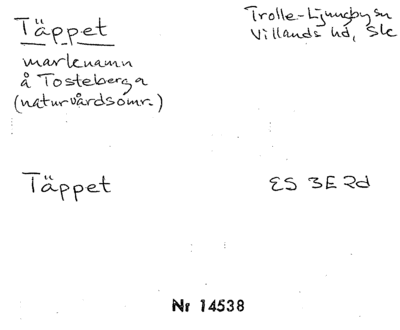 Täppet
Trolle-Ljungby sn
Villands hd, Sk
marknamn
å Tosteberga
(naturvårdsomr.)
Täppet
ES 3E2d
Nr 14538